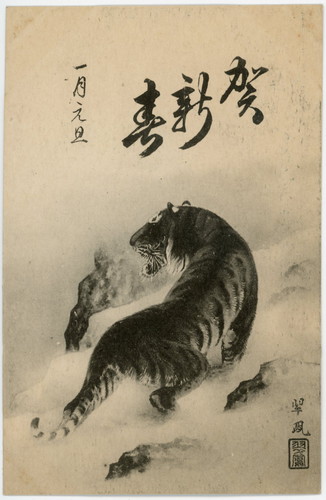 賀新春
一月元旦
翠風